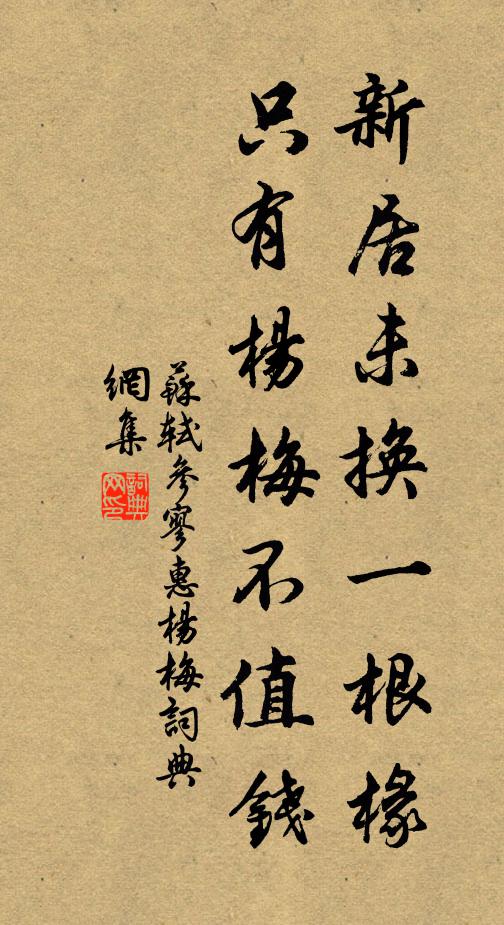 新居未换一根椽
只有楊梅不值錢
蘇軾參寥惠楊梅詞典
網集
詞典
网印